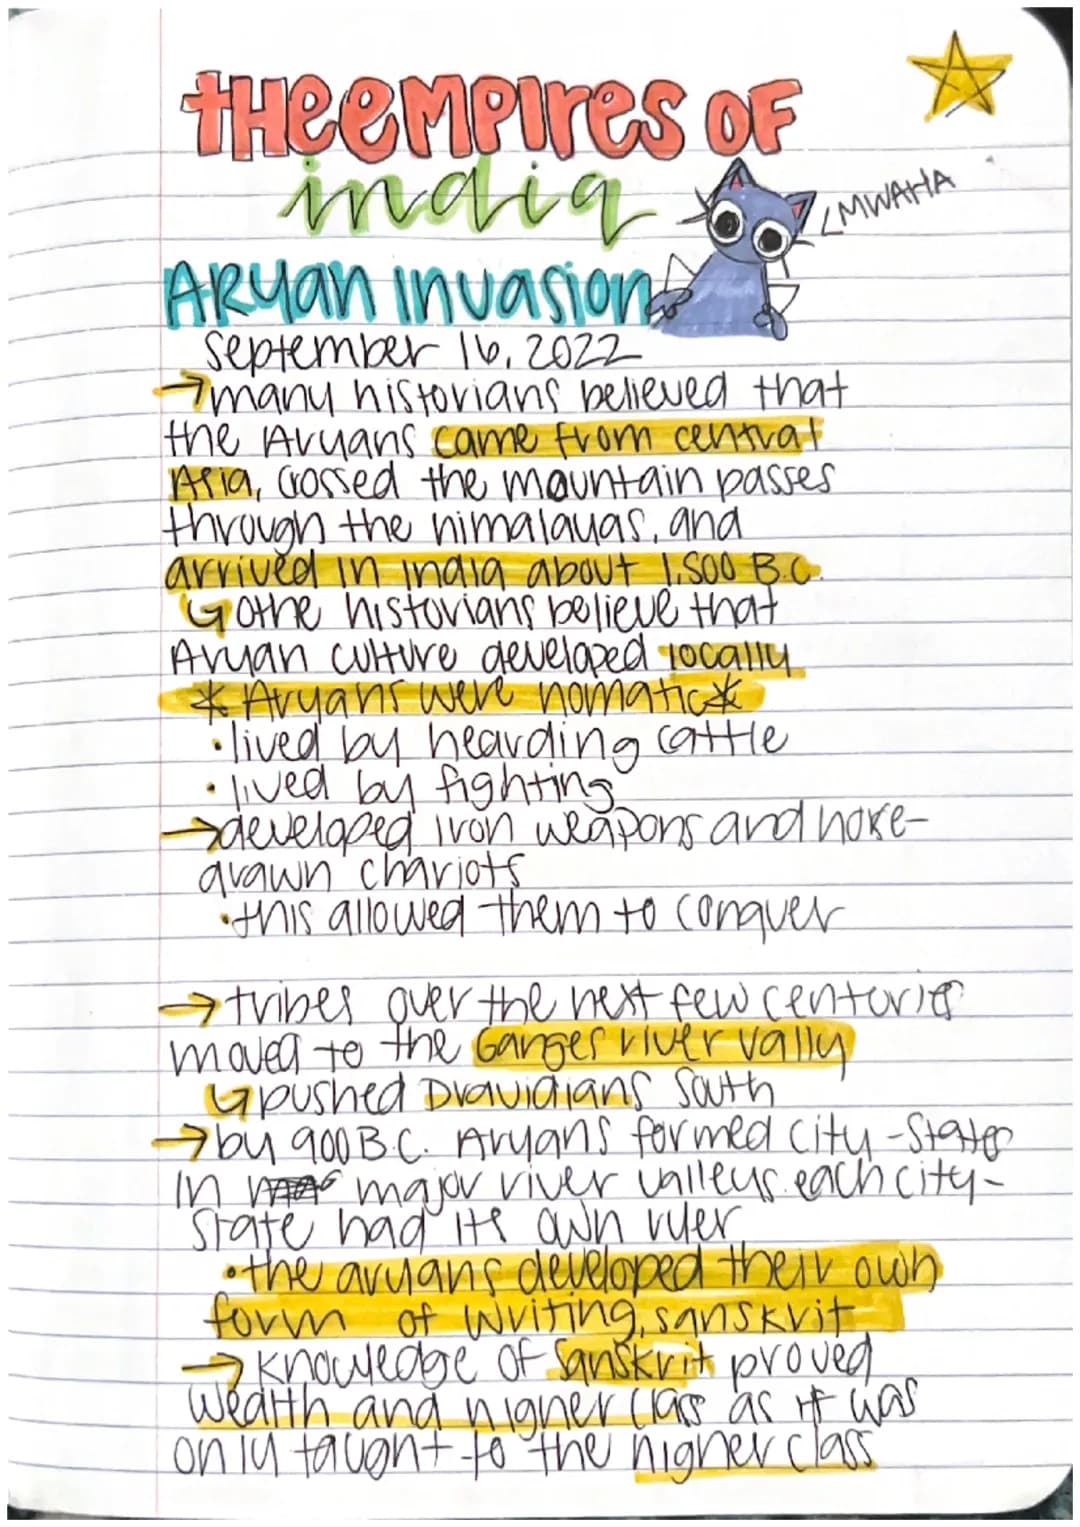 THE EMPIRES OF
india
<MWAHA
ARyan Invasion
September 16, 2022
→many historians believed that
the Aryans came from central
Asia, crossed the mountain passes
through the himalayas, and
arrived in india about 1,500 B.C.
↳othe historians believe that
Aryan culture developed locally
* Aryans were nomatic*
•lived by hearding cattle
•lived by fighting
→developed iron weapons and horse-
drawn chariots
•this allowed them to conquer
→tribes over the next few centuries
moved to the Ganges river vally
↳pushed Dravidians south
→by 900 B.C. Aryans formed city-states
in major river valleys. each city-
state had its own ruler
•the aryans developed their own
form of writing, sanskrit
→knowledge of Sanskrit proved
wealth and higher class as it was
only taught to the higher class